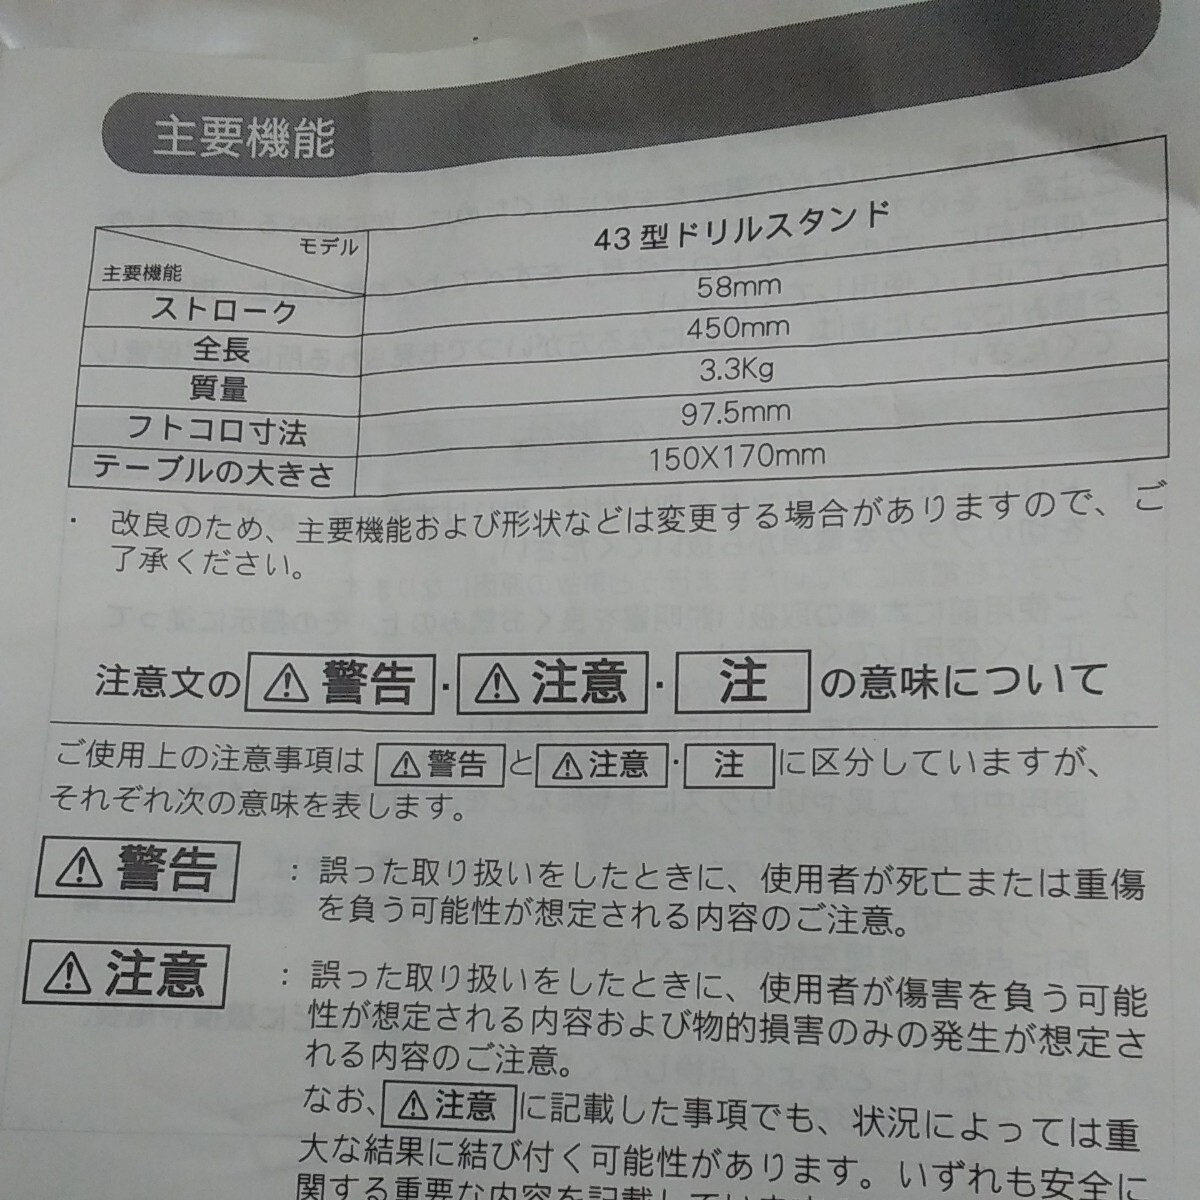 主要機能
モデル 43型ドリルスタンド
主要機能
ストローク 58mm
全長 450mm
質量 3.3Kg
フトコロ寸法 97.5mm
テーブルの大きさ 150X170mm
・ 改良のため、主要機能および形状などは変更する場合がありますので、ご
了承ください。
注意文の ⚠警告 ・ ⚠注意 ・ 注 の意味について
ご使用上の注意事項は ⚠警告 と ⚠注意 ・ 注 に区分していますが、
それぞれ次の意味を表します。
⚠警告 : 誤った取り扱いをしたときに、使用者が死亡または重傷
を負う可能性が想定される内容のご注意。
⚠注意 : 誤った取り扱いをしたときに、使用者が傷害を負う可能
性が想定される内容および物的損害のみの発生が想定さ
れる内容のご注意。
なお、 ⚠注意 に記載した事項でも、状況によっては重
大な結果に結び付く可能性があります。いずれも安全に
関する重要な内容を記載しています